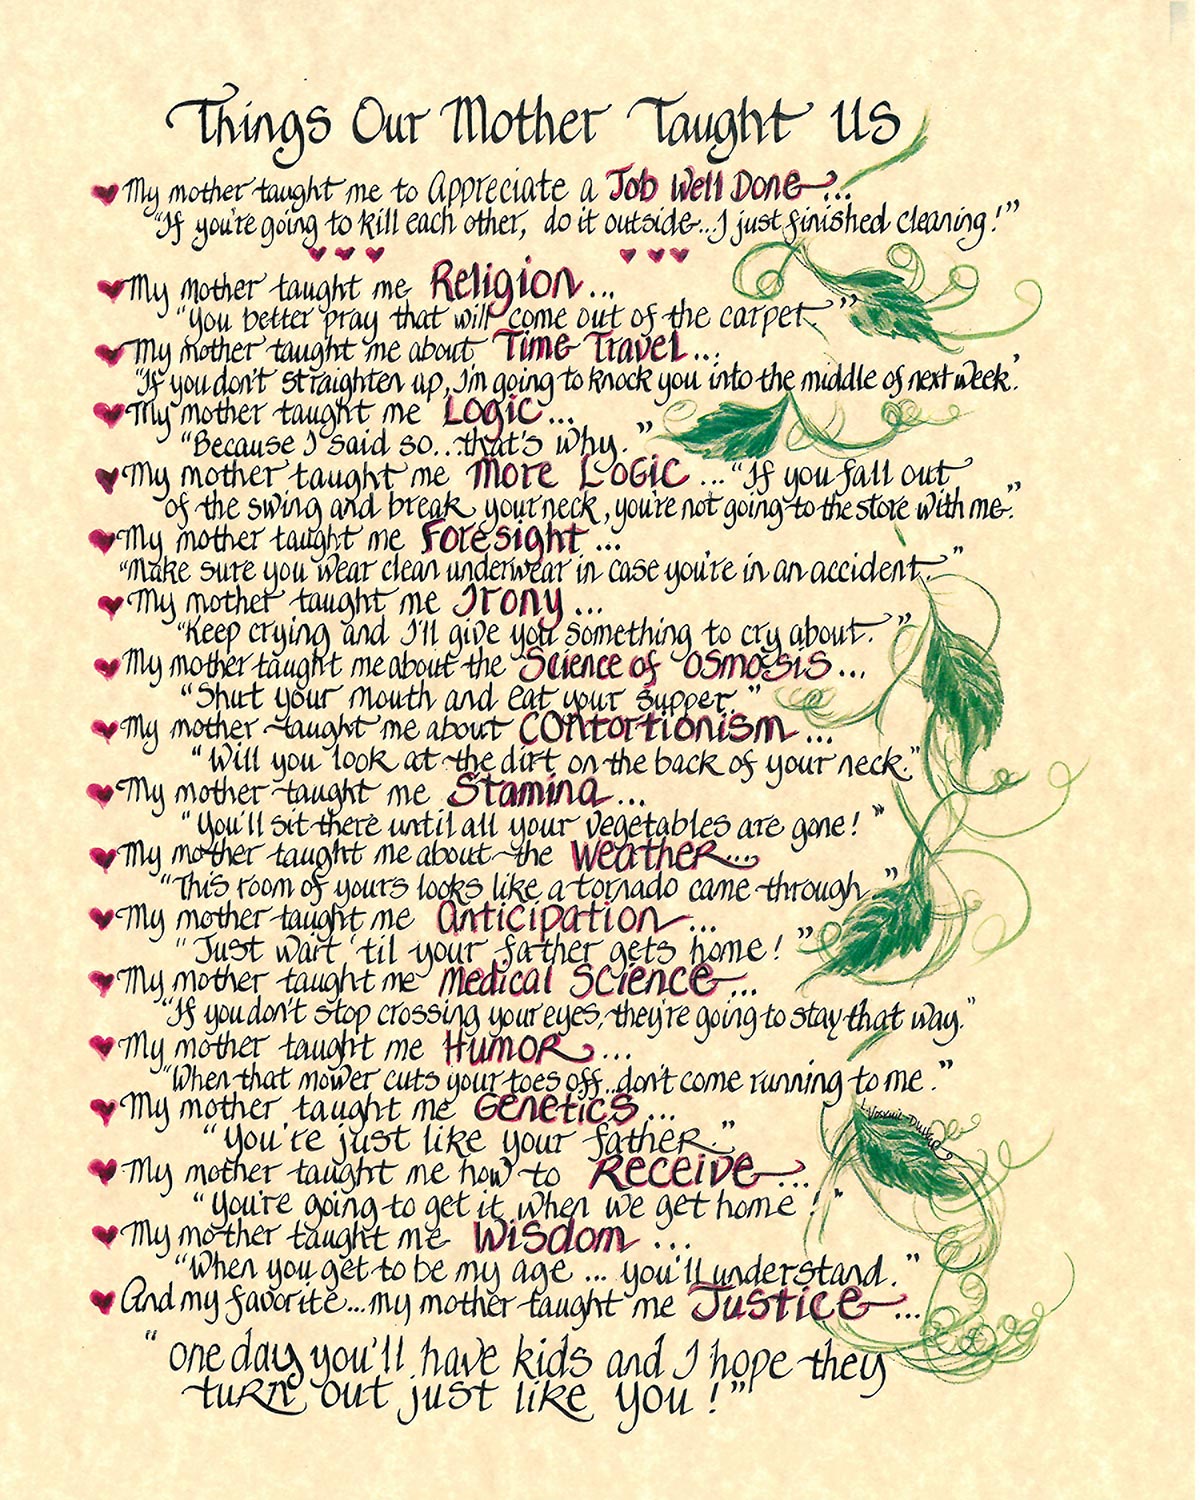 Things Our Mother Taught Us
My mother taught me to Appreciate a Job Well Done...
"If you're going to kill each other, do it outside...I just finished cleaning!"
My mother taught me Religion...
"You better pray that will come out of the carpet."
My mother taught me about Time Travel...
"If you don't straighten up, I'm going to knock you into the middle of next week."
My mother taught me Logic...
"Because I said so...that's why."
My mother taught me More Logic..."If you fall out
of the swing and break your neck, you're not going to the store with me."
My mother taught me Foresight...
"Make sure you wear clean underwear in case you're in an accident."
My mother taught me Irony...
"Keep crying and I'll give you something to cry about."
My mother taught me about the Science of Osmosis...
"Shut your mouth and eat your supper."
My mother taught me about Contortionism...
"Will you look at the dirt on the back of your neck."
My mother taught me Stamina...
"You'll sit there until all your vegetables are gone!"
My mother taught me about the Weather...
"This room of yours looks like a tornado came through"
My mother taught me Anticipation...
"Just wait 'til your father gets home!"
My mother taught me Medical Science...
"If you don't stop crossing your eyes, they're going to stay that way."
My mother taught me Humor...
"When that mower cuts your toes off..don't come running to me."
My mother taught me Genetics...
"You're just like your father."
My mother taught me how to Receive...
"You're going to get it when we get home!"
My mother taught me Wisdom...
"When you get to be my age... you'll understand."
And my favorite...my mother taught me Justice...
"one day you'll have kids and I hope they
turn out just like you!"